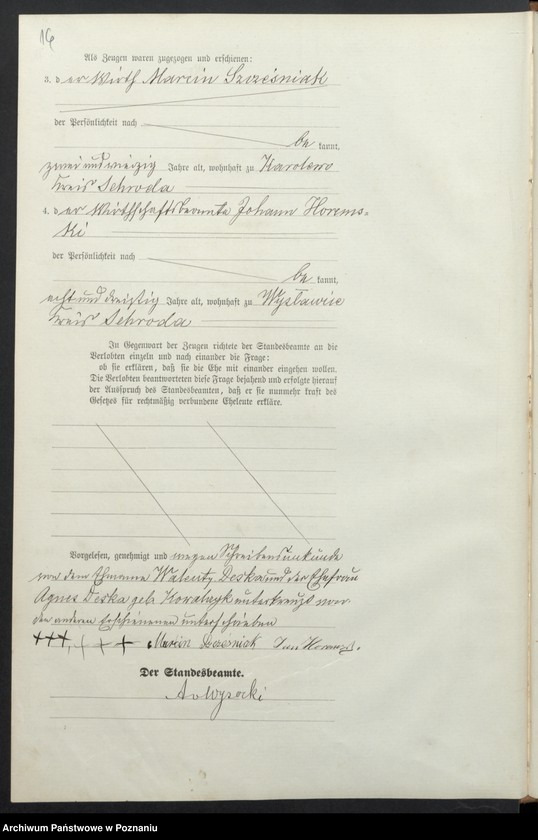 16
Als Zeugen waren zugezogen und erschienen:
3. der Wirth Marcin Szcześniak
der Persönlichkeit nach
be kannt,
zwei und vierzig Jahre alt, wohnhaft zu Karolewo
Kreis Schroda
4. der Wirthschaftsbeamte Johann Horems-
ki
der Persönlichkeit nach
be kannt,
acht und dreißig Jahre alt, wohnhaft zu Wysławice
Kreis Schroda
In Gegenwart der Zeugen richtete der Standesbeamte an die
Verlobten einzeln und nach einander die Frage:
ob sie erklären, daß sie die Ehe mit einander eingehen wollen.
Die Verlobten beantworteten diese Frage bejahend und erfolgte hierauf
der Ausspruch des Standesbeamten, daß er sie nunmehr kraft des
Gesetzes für rechtmäßig verbundene Eheleute erkläre.
Vorgelesen, genehmigt und wegen Schreibensunkunde
von dem Ehemanne Walenty Deska und der Ehefrau
Agnes Deska geb. unterkreuzt von
den anderen Erschienenen unterschrieben
+++, +++ Marcin Jan
Der Standesbeamte.
Archiwum Państwowe w Poznaniu